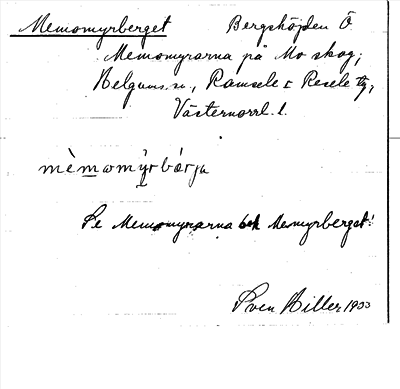 Memomyrberget Bergshöjden Ö
Memomyrarna på Mo skog,
Helgums sn., Ramsele o Resele tg,
Västernorrl. l.
mèmomỳrbærju
Se Memomyrarna och Memyrberget!
Sven Hiller 1933